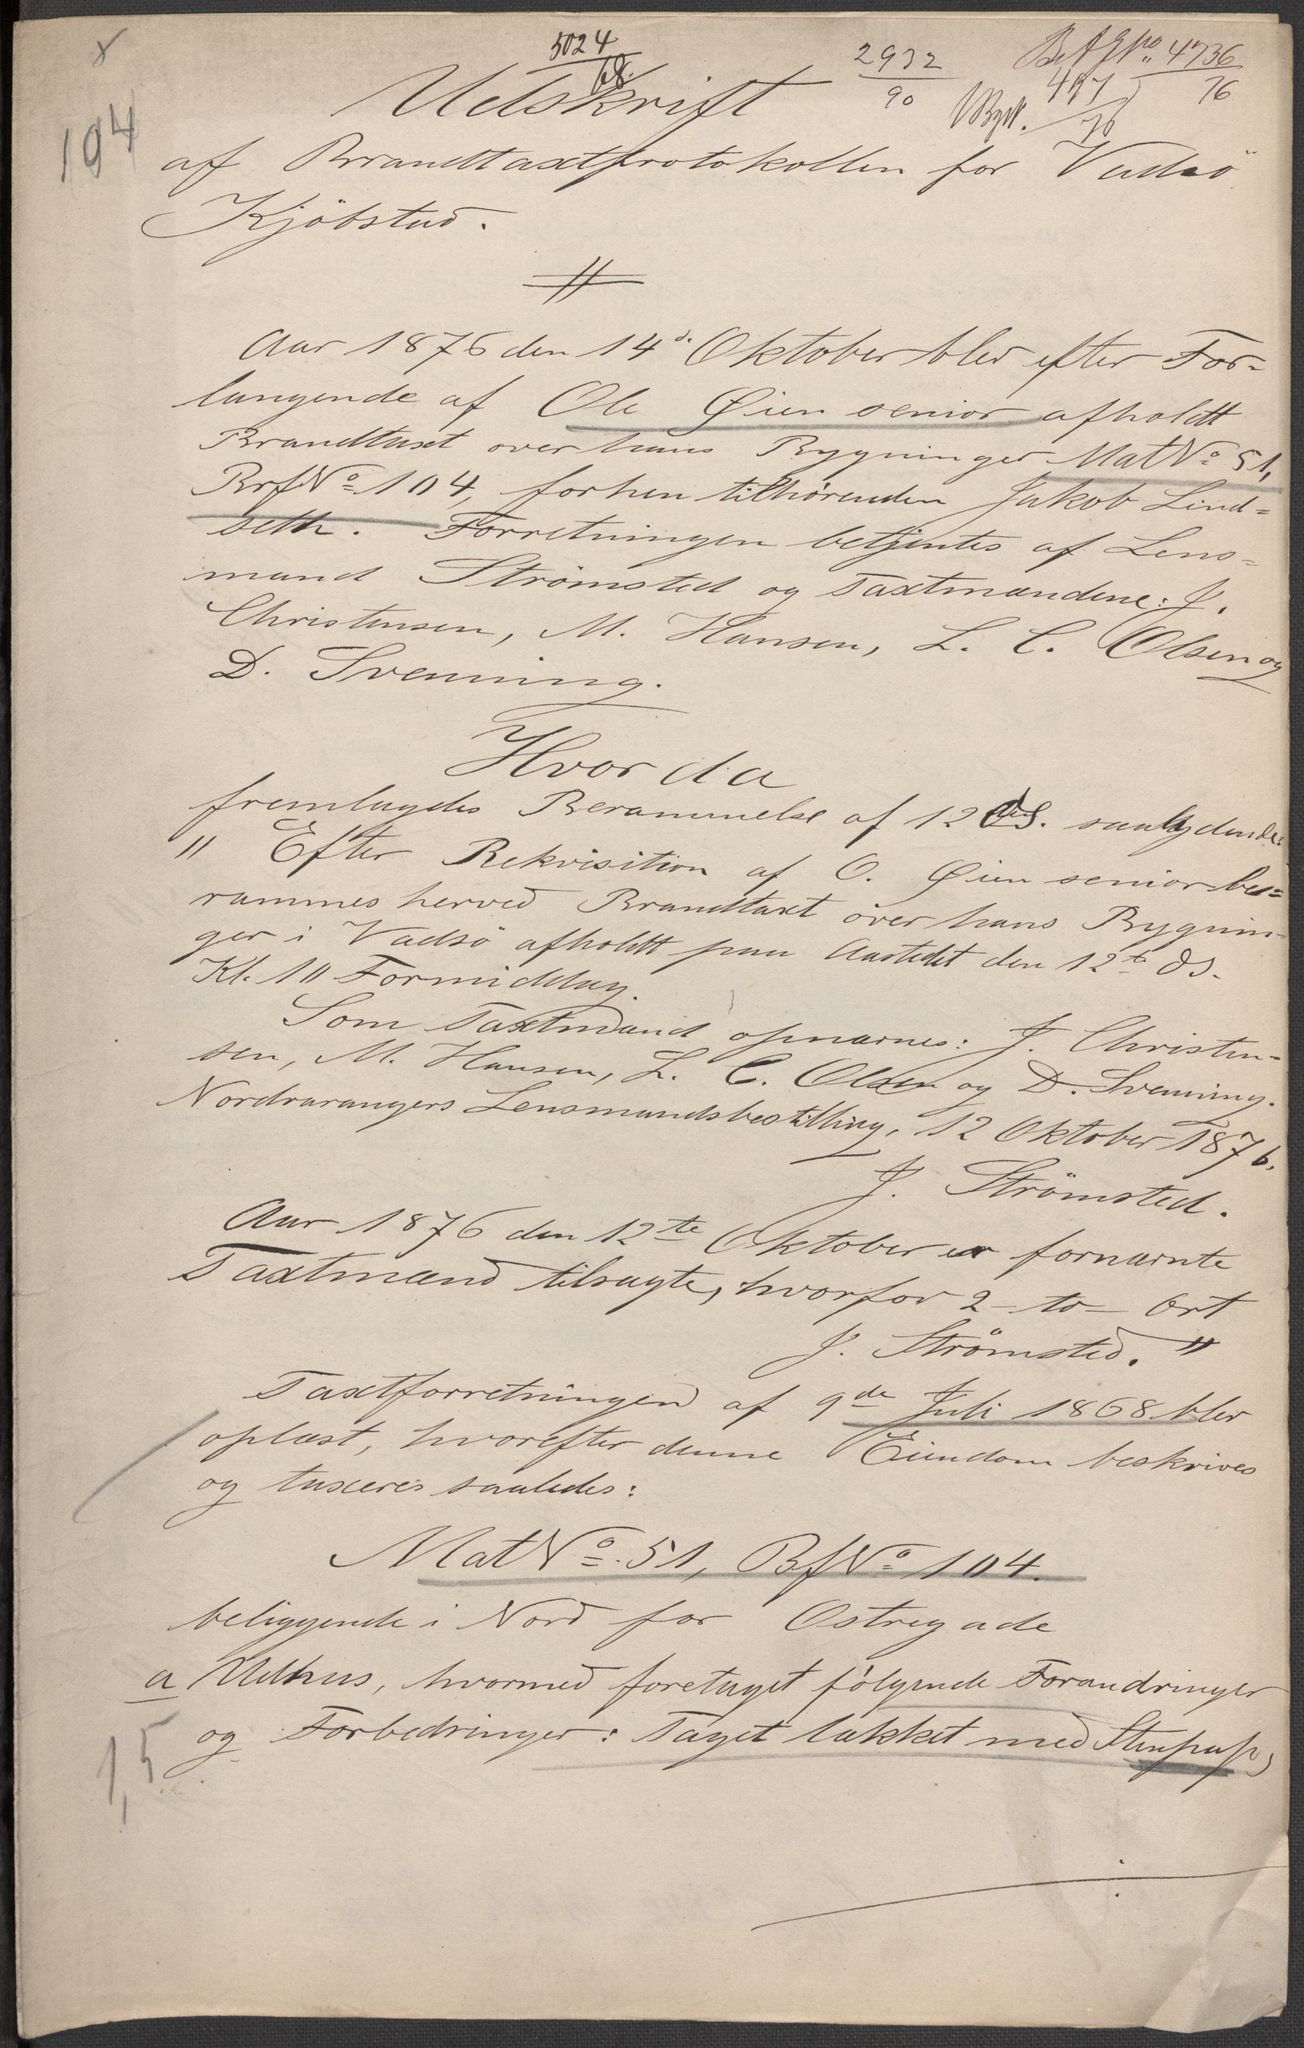 5024
68.
2932
90
4736
76
497
76
104
Udskrift
af Brandtaxtprotokollen for Vadsö
Kjöbstad.
Aar 1876 den 14d. Oktober blev efter For-
langende af Ole Øien senior afholdt
Brandtaxt over hans Bygninger Mat No 51,
BrfNo 104, forhen tilhørenden Jakob Lind-
seth. Forretningen betjentes af Lens-
mand Strømsted og Taxtmændene: J.
Christensen, M. Hansen, L. C. Olsen og
D. Svenning.
Hvor da
fremlagdes Berammelse af 12 ds. saalydende:
" Efter Rekvisition af O. Øien senior be-
rammes herved Brandtaxt över hans Bygnin-
ger i Vadsö afholdt paa Aastedet den 12te ds.
Kl. 10 Formiddag.
Som Taxtmænd opnævnes: J. Christen-
sen, M. Hansen, L. C. Olsen og D. Svenning.
Nordvarangers Lensmandsbestilling, 12 Oktober 1876.
J. Strømsted.
Aar 1876 den 12te Oktober er fornævnte
Taxtmænd tilsagte, hvorfor 2 - to - Ort
J. Strømsted. "
Taxtforretningen af 9de Juli 1868 blev
oplæst, hvorefter denne Eiendom beskrives
og taxeres saaledes:
Mat No 51, BfNo 104.
beliggende i Nord for Østregade
a Udhus, hvormed foretaget følgende Forandringer
og Forbedringer: Taget tækket med Stenpap,
1,5